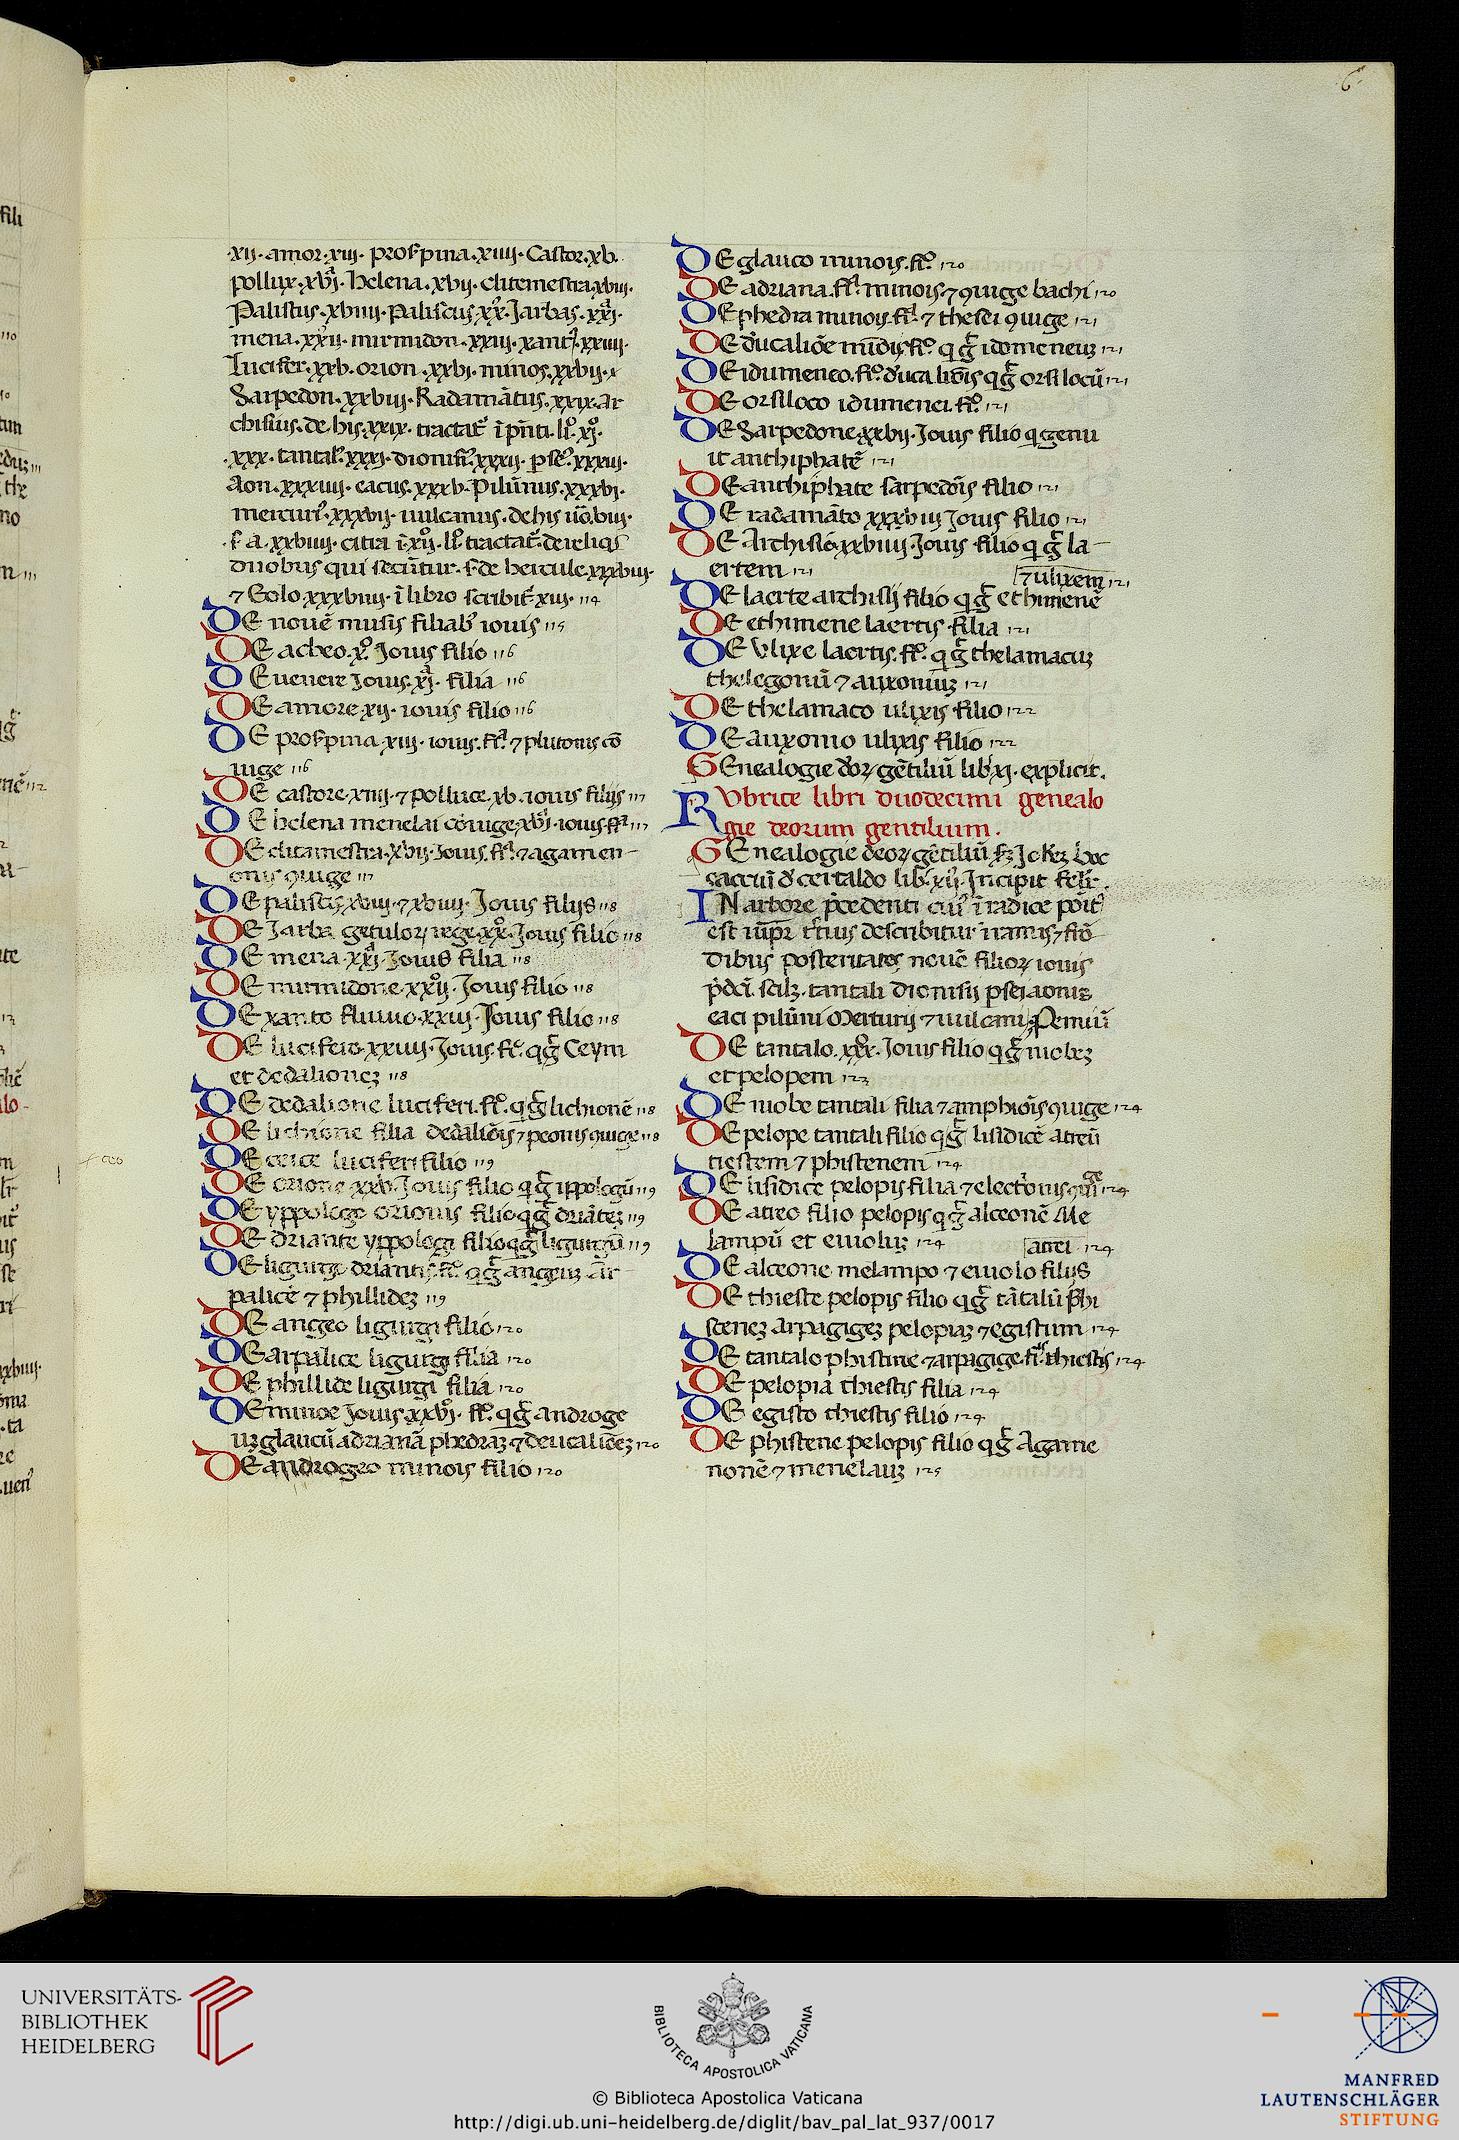 6
xij. amor. xiij. proserpina. xiiij. Castor. xv.
pollux. xvj. helena. xvij. clitemestra xviij.
Palistus. xviiij. Paliscus. xx. Jarbas. xxj.
mena. xxij. mirmidon. xxiij. xant9. xxiiij.
Lucifer. xxv. orion. xxvj. minos. xxvij.
Sarpedon. xxviij. Radamãtus. xxix. Ar
chisius. de his. xxix. tractat i pñti. li. xj.
.xxx. tantal9. xxxj. dionisi9. xxxij. pse9. xxxiij.
Aon. xxxiiij. eacus. xxxv. Pilũnus. xxxvj.
mercuri9. xxxvij. uulcanus. de his uo. viij.
citra i xij. li tractat. de reliqs
duobus qui secũtur. s. de hercule. xxxviij.
⁊ Eolo. xxxviiij. i libro scribit xiij. 114
DE nouẽ musis filiab9 iouis 115
DE acheo. x. Jouis filio 116
DE uenere Jouis. xj. filia 116
DE amore xij. iouis filio 116
DE proserpina xiij. iouis. fa. ⁊ plutonis cõ
iuge 116
DE castore. xiiij. ⁊ polluce. xv. iouis filijs 117
DE helena menelai cõiuge. xvj. iouis. fa 117
DE clitamestra. xvij. Jouis. fa. ⁊ agamen-
onis 9iuge 117
DE paliscis xviij. ⁊ xviiij. Jouis filijs 118
DE Jarba getuloꝝ rege. xx. Jouis filio 118
DE mena. xxj. Jouis filia 118
DE mirmidone. xxij. Jouis filio 118
DE xanto fluuio. xxiij. Jouis filio 118
DE lucifero. xxiiij. Jouis. fo. qg Ceym
et dedalionez 118
DE dedalione luciferi. fo. qg lichionẽ 118
DE lichione filia dedaliõis ⁊ peonis 9iuge 118
DE ceice luciferi filio 119
DE orione xxv. Jouis filio qg ippologũ 119
DE yppologo orionis filio qg driãtez 119
DE driante yppologi filio qg ligurgũ 119
DE ligurgo driantis. fo. qg angeuz ar-
palicẽ ⁊ phillidez 119
DE angeo ligurgi filio 120
DE arpalice ligurgi filia 120
DE phillide ligurgi filia 120
DE minoe Jouis xxvj. fo. qg androge
uz glaucũ adrianã phedraz ⁊ deucaliõez 120
DE androgeo minois filio 120
DE glauco minois. fo. 120
DE adriana. fa. minois ⁊ 9iuge bachi 120
DE phedra minois. fa. ⁊ thesei 9iuge 121
DE ducaliõe fo. qg idomeneuz 121
DE idumeneo. fo. ducalionis qg orsilocũ 121
DE orsiloco idumenei. fo. 121
DE Sarpedone xxvij. Jouis filio q genu
it anthiphatẽ 121
DE anthiphate sarpedõis filio 121
DE radamãto xxxviij Jouis filio 121
DE Archisio xxviiij. Jouis filio qg la-
ertem 121
⁊ ulixem 121
DE laerte archisij filio qg ethimenẽ
DE ethimene laertis filia 121
DE Vlixe laertis. fo. qg thelamacuz
thelegoniũ ⁊ auxoniuz 121
DE thelamaco ulixis filio 122
DE auxonio ulixis filio 122
GEnealogie deoꝝ gẽtiliũ lib. xj. explicit.
RVbrice libri duodecimi genealo
gie deorum gentilium.
GEnealogie deoꝝ gẽtiliũ boc
caciũ d certaldo lib. xij. Incipit felir.
IN arbore pcedenti cui9 i radice poit
est iupr tertius describitur i ramis ⁊ frõ
dibus posteritates nouẽ filioꝝ iouis
pdci. scilz. tantali dionisij psei aonis
eaci pilũni Mercurij ⁊ uulcani. Pemiũ
DE tantalo. xxx. Jouis filio qg niobez
et pelopem 123
DE niobe tantali filia ⁊ amphiõis 9iuge 124
DE pelope tantali filio qg lisidicẽ atreũ
tiestem ⁊ phistenem 124
DE lisidice pelopis filia ⁊ electrionis 124
DE atreo filio pelopis qg alceonẽ Me
lampũ et euioluz 124
atrei 124
DE alceone melampo ⁊ euiolo filijs
DE thieste pelopis filio qg tãtalũ phi
stenez arpagigez pelopiaz ⁊ egistum 124
DE tantalo phistine ⁊ arpagige. thiestis 124
DE pelopia thiestis filia 124
DE egisto thiestis filio 124
DE phistene pelopis filio qg Agame
nonẽ ⁊ menelauz 125
UNIVERSITÄTS-
BIBLIOTHEK
HEIDELBERG
BIBLIOTECA APOSTOLICA VATICANA
© Biblioteca Apostolica Vaticana
http://digi.ub.uni-heidelberg.de/diglit/bav_pal_lat_937/0017
MANFRED
LAUTENSCHLÄGER
STIFTUNG